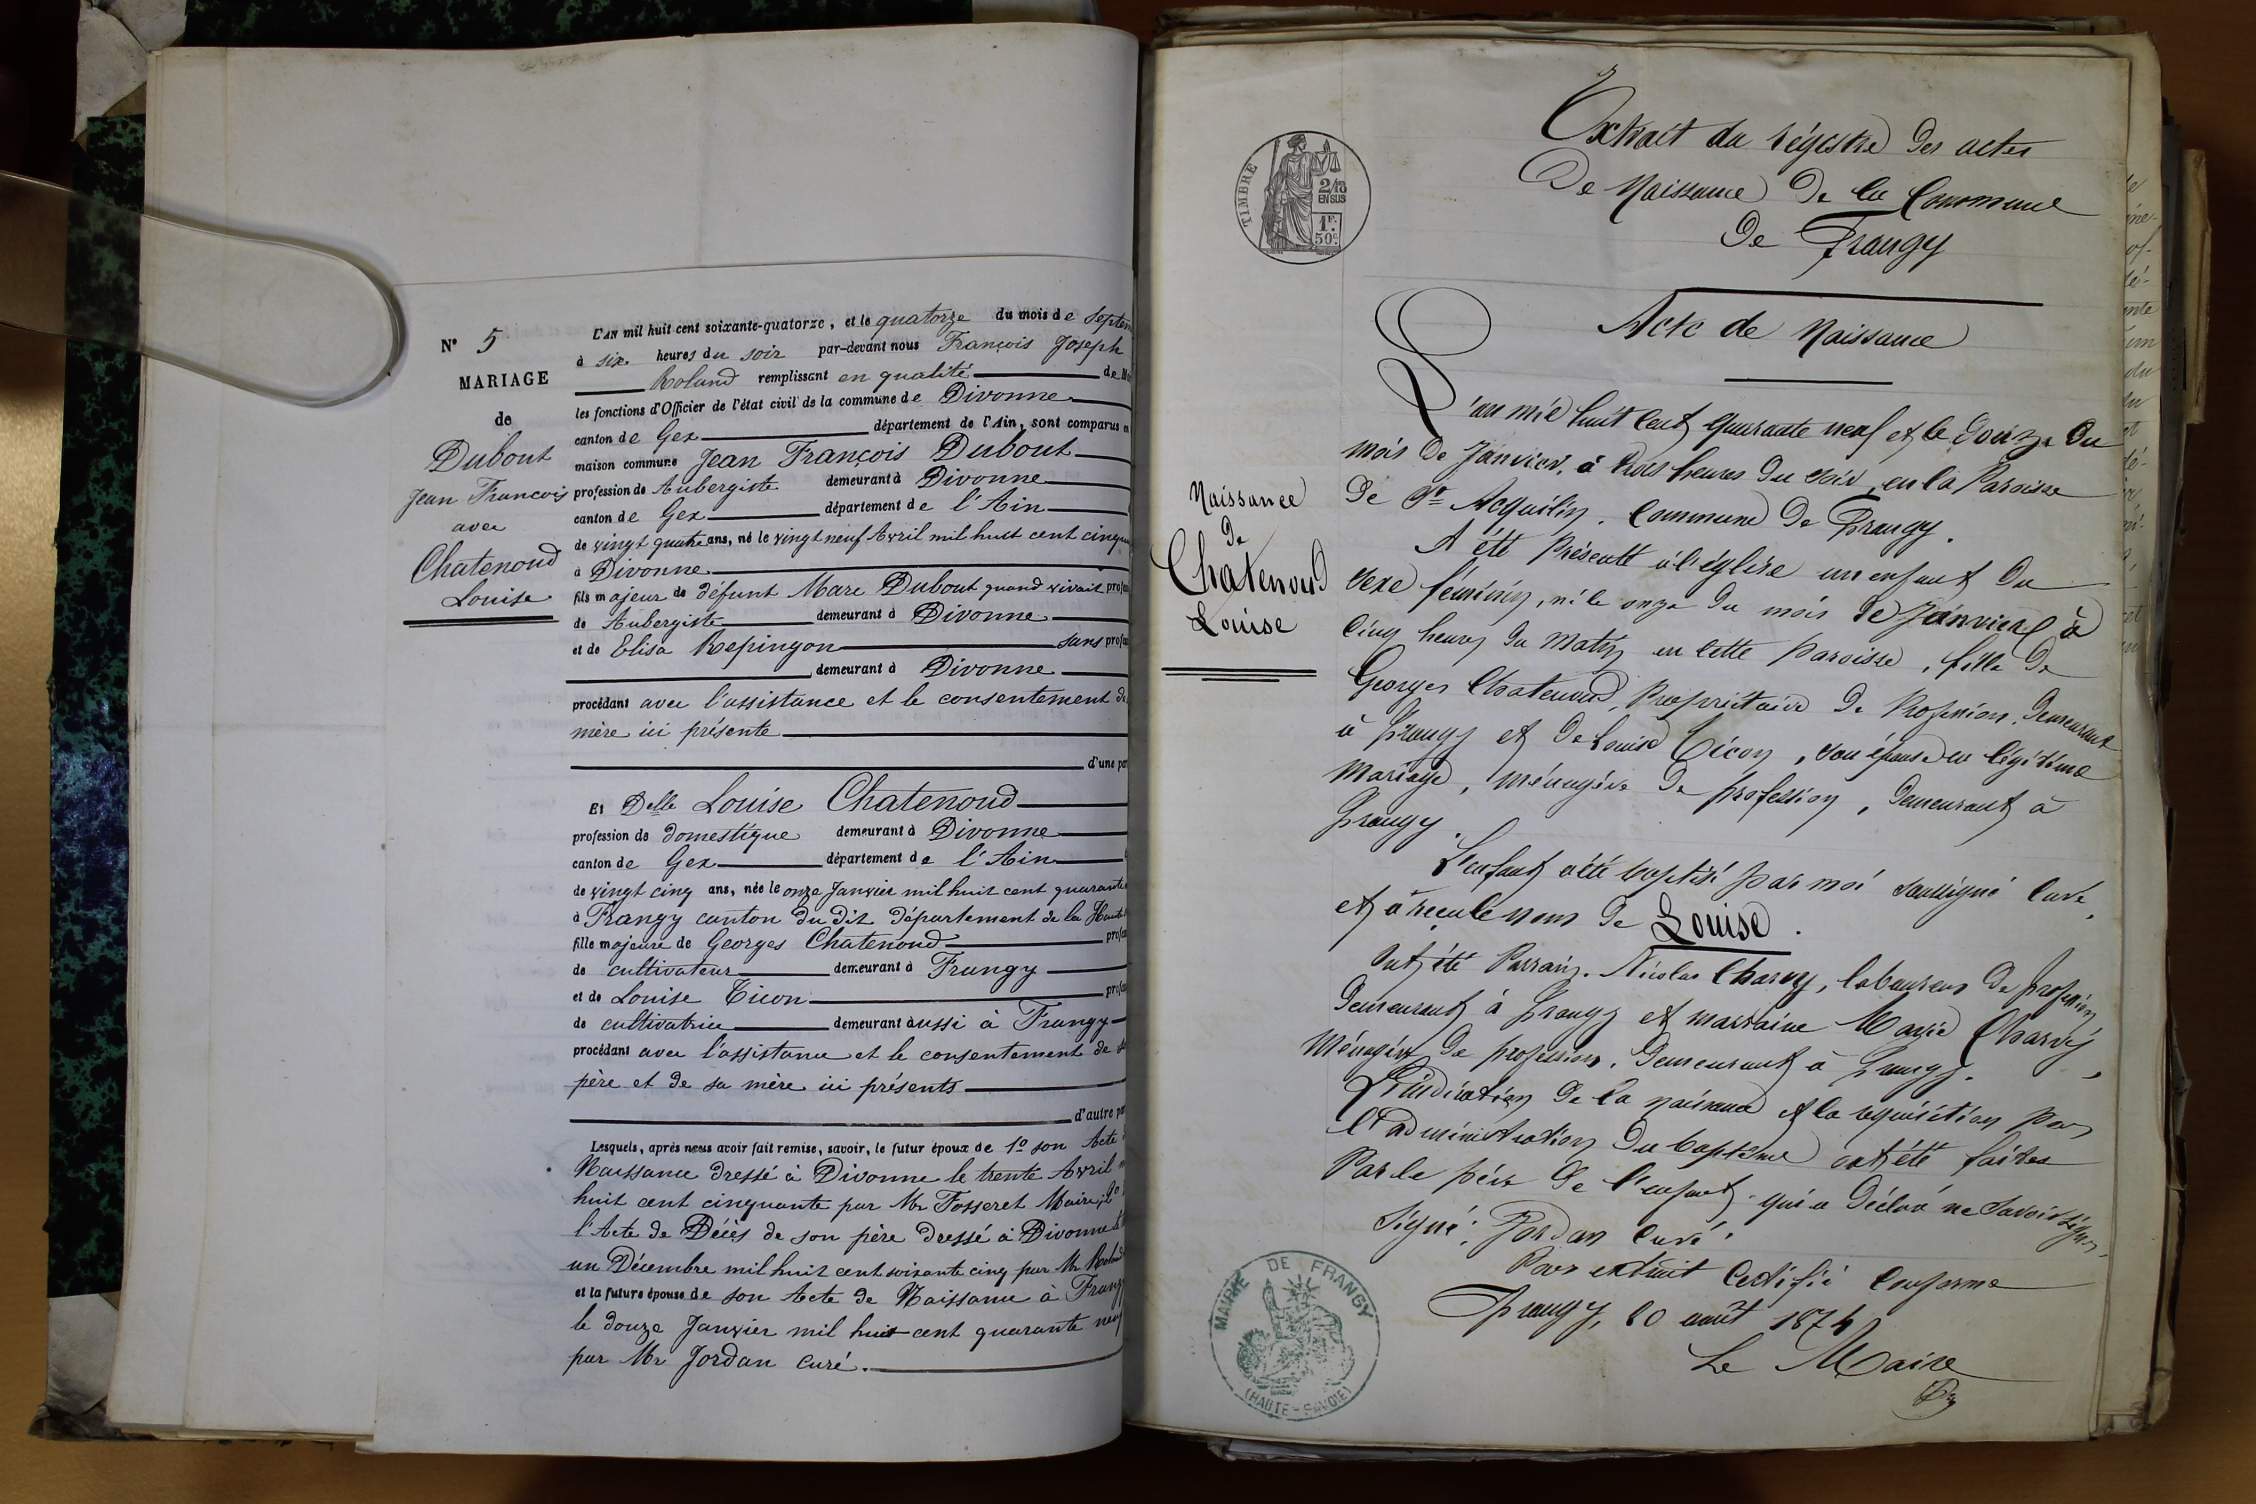 N° 5
MARIAGE
de
Dubout
Jean Francois
avec
Chatenoud
Louise
L'AN mil huit cent soixante-quatorze, et le quatorze du mois de Septem
à six heures du soir par-devant nous François Joseph
Roland remplissant en qualité de M
les fonctions d'Officier de l'état civil de la commune de Divonne
canton de Gex département de l'Ain, sont comparus en
maison commune Jean François Dubout
profession de Aubergiste demeurant à Divonne
canton de Gex département de l'Ain
de vingt quatre ans, né le vingt neuf Avril mil huit cent cinqu
à Divonne
fils majeur de défunt Marc Dubout quand vivait profes
de Aubergiste demeurant à Divonne
et de Elisa Repingon sans profes
demeurant à Divonne
procédant avec l'assistance et le consentement de
mère ici présente
d'une par
Et Delle Louise Chatenoud
profession de domestique demeurant à Divonne
canton de Gex département de l'Ain
de vingt cinq ans, née le onze Janvier mil huit cent quarante
à Frangy canton du dit département de la Haute
fille majeure de Georges Chatenoud profes
de cultivateur demeurant à Frangy
et de Louise Ticon profes
de cultivatrice demeurant aussi à Frangy
procédant avec l'assistance et le consentement de s
père et de sa mère ici présents
d'autre par
Lesquels, après nous avoir fait remise, savoir, le futur époux de 1° son Acte
Naissance dressé à Divonne le trente Avril
huit cent cinquante par Mr Fosseret Maire; 2°
l'Acte de Décès de son père dressé à Divonne
un Décembre mil huit cent soixante cinq par Mr Roland
et la future épouse de son Acte de Naissance à Frangy
le douze Janvier mil huit cent quarante neuf
par Mr Jordan curé.
TIMBRE
2/10
EN SUS
1F.
50c
Extrait du régistre des actes
De Naissance de la Commune
de Frangy
Acte de Naissance
Naissance
de
Chatenoud
Louise
L'an mil huit cent quarante neuf et le Douze du
mois de Janvier, à trois heures du soir, en la Paroisse
de St Acquilin, Commune de Frangy.
A été Présenté à l'église un enfant du
sexe féminin, né le onze du mois de Janvier à
cinq heures du Matin en cette paroisse, fille de
Georges Chatenoud, Propriétaire de Profession, demeurant
à Frangy et de Louise Ticon, son épouse en légitime
mariage, ménagère de profession, demeurant à
Frangy.
L'enfant a été baptisé par moi soussigné Curé,
et a reçu le nom de Louise.
Ont été Parrain, Nicolas Charvey, laboureur de profession
demeurant à Frangy et marraine Marie Charvey,
Ménagère de profession, demeurant à Frangy.
L'indication de la naissance et la réquisition pour
l'administration du baptême ont été faites
Par le père de l'enfant qui a déclaré ne savoir signer.
Signé: Jordan curé.
Pour extrait Certifié Conforme
Frangy, 20 août 1874
Le Maire
MAIRIE DE FRANGY
(HAUTE-SAVOIE)